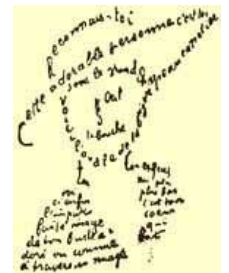 Reconnais-toi
Cette adorable personne c'est toi
sous le grand chapeau canotier
œil
la bouche
l'ovale de ta figure
ton cou exquis
ci enfin
l'impar
faite image
de ton buste a
doré vu comme
à travers un nuage
un peu
plus bas
c'est ton
coeur
qui
bat